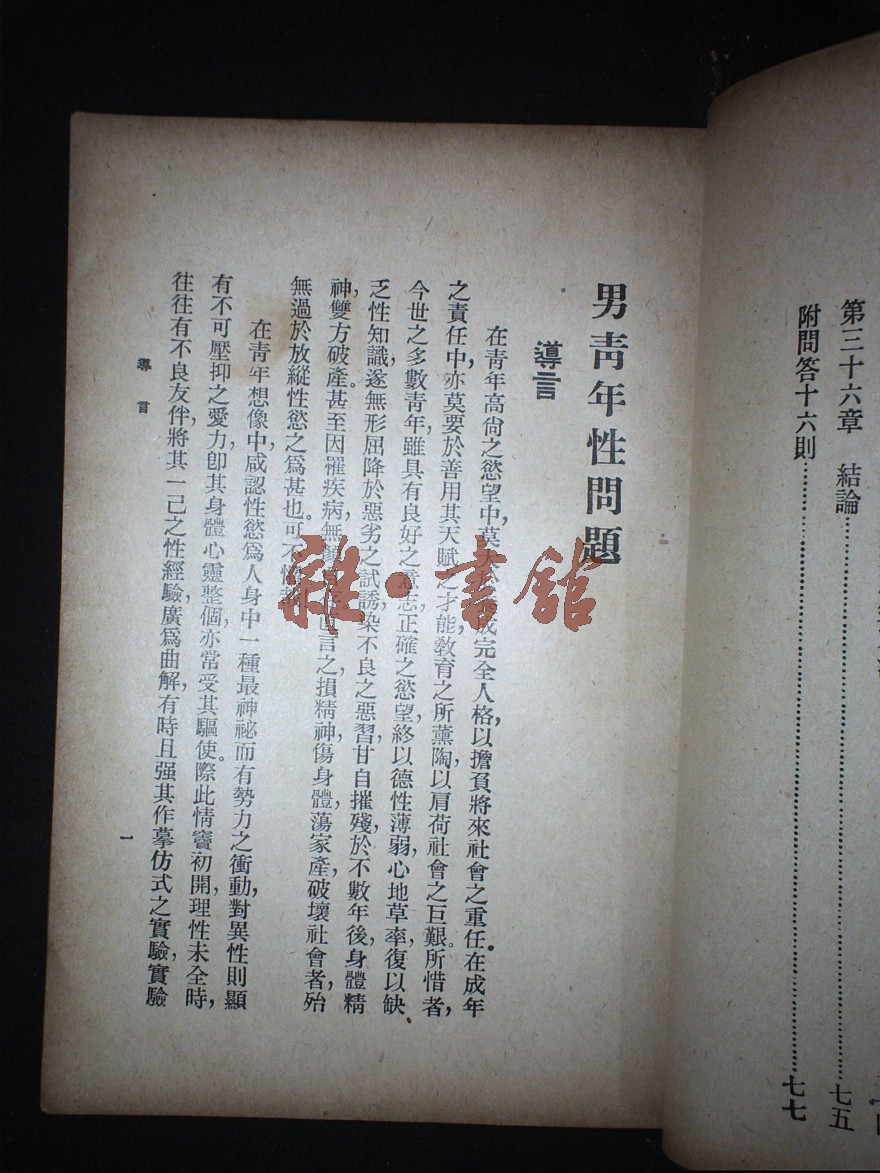 第三十六章 結論……七五
附問答十六則……七七
男青年性問題
導言
在青年高尚之慾望中,莫大成完全人格,以擔負將來社會之重任。在成年
之責任中,亦莫要於善用其天賦之才能,教育之所薰陶,以肩荷社會之巨艱。所惜者,
今世之多數青年,雖具有良好之意志,正確之慾望,終以德性薄弱,心地草率,復以缺
乏性知識,遂無形屈降於惡劣之試誘,染不良之惡習,甘自摧殘,於不數年後,身體精
神,雙方破產。甚至因罹疾病,無言之,損精神,傷身體,蕩家產,破壞社會者,殆
無過於放縱性慾之爲甚也。可不
在青年想像中,咸認性慾爲人身中一種最神祕而有勢力之衝動,對異性則顯
有不可壓抑之愛力,卽其身體心靈整個,亦常受其驅使。際此情竇初開,理性未全時,
往往有不良友伴,將其一己之性經驗,廣爲曲解,有時且强其作摹仿式之實驗,實驗
導言
一
雜·書館